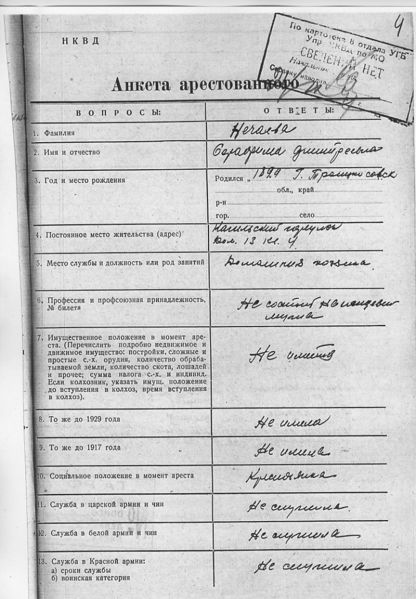 4
По картотеке 8 отдела УГБ
Упр. НКВД по МО
СВЕДЕНИЙ НЕТ
НКВД
Анкета арестованного
ВОПРОСЫ: ОТВЕТЫ:
1. Фамилия Нечаева
2. Имя и отчество Серафима Дмитриевна
3. Год и место рождения Родился 1899 г.
обл., край
р-н
гор. село
4. Постоянное место жительства (адрес)
дом. 13 кв. 9
5. Место службы и должность или род занятий Домашняя хозяйка
6. Профессия и профсоюзная принадлежность, Не состоит
№ билета мужа
7. Имущественное положение в момент аре-
ста. (Перечислить подробно недвижимое и
движимое имущество: постройки, сложные и
простые с.-х. орудия, количество обрабаты-
ваемой земли, количество скота, лошадей
и прочее; сумма налога с.-х. и индивид.
Если колхозник, указать имущ. положение
до вступления в колхоз, время вступления
в колхоз). Не имела
8. То же до 1929 года Не имела
9. То же до 1917 года Не имела
10. Социальное положение в момент ареста
11. Служба в царской армии и чин Не служила
12. Служба в белой армии и чин Не служила
13. Служба в Красной армии: Не служила
а) сроки службы
б) воинская категория